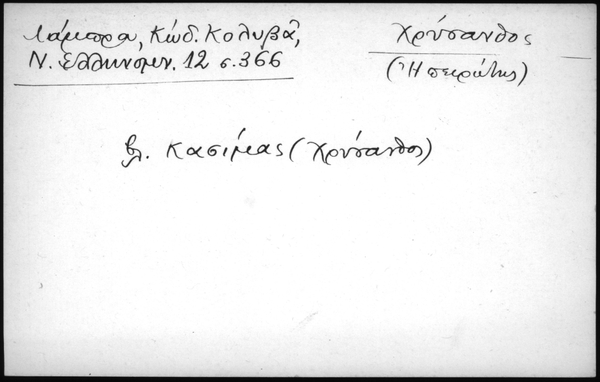 Λάμπρα, Κώδ. Κολυβᾶ,
Ν. Ἑλληνομν. 12 σ. 366
Χρύσανθος
(Ἠπειρώτης)
βλ. Κασίμας (Χρύσανθος)